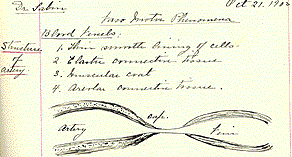 Dr. Sabin Oct 21. 190
Vaso Motor Phenomena
Blood Vessels:
Structure of artery
1. Thin smooth lining of cells.
2 Elastic connective tissue
3. Muscular coat
4. Areolar connective tissue.
artery cap. Vein